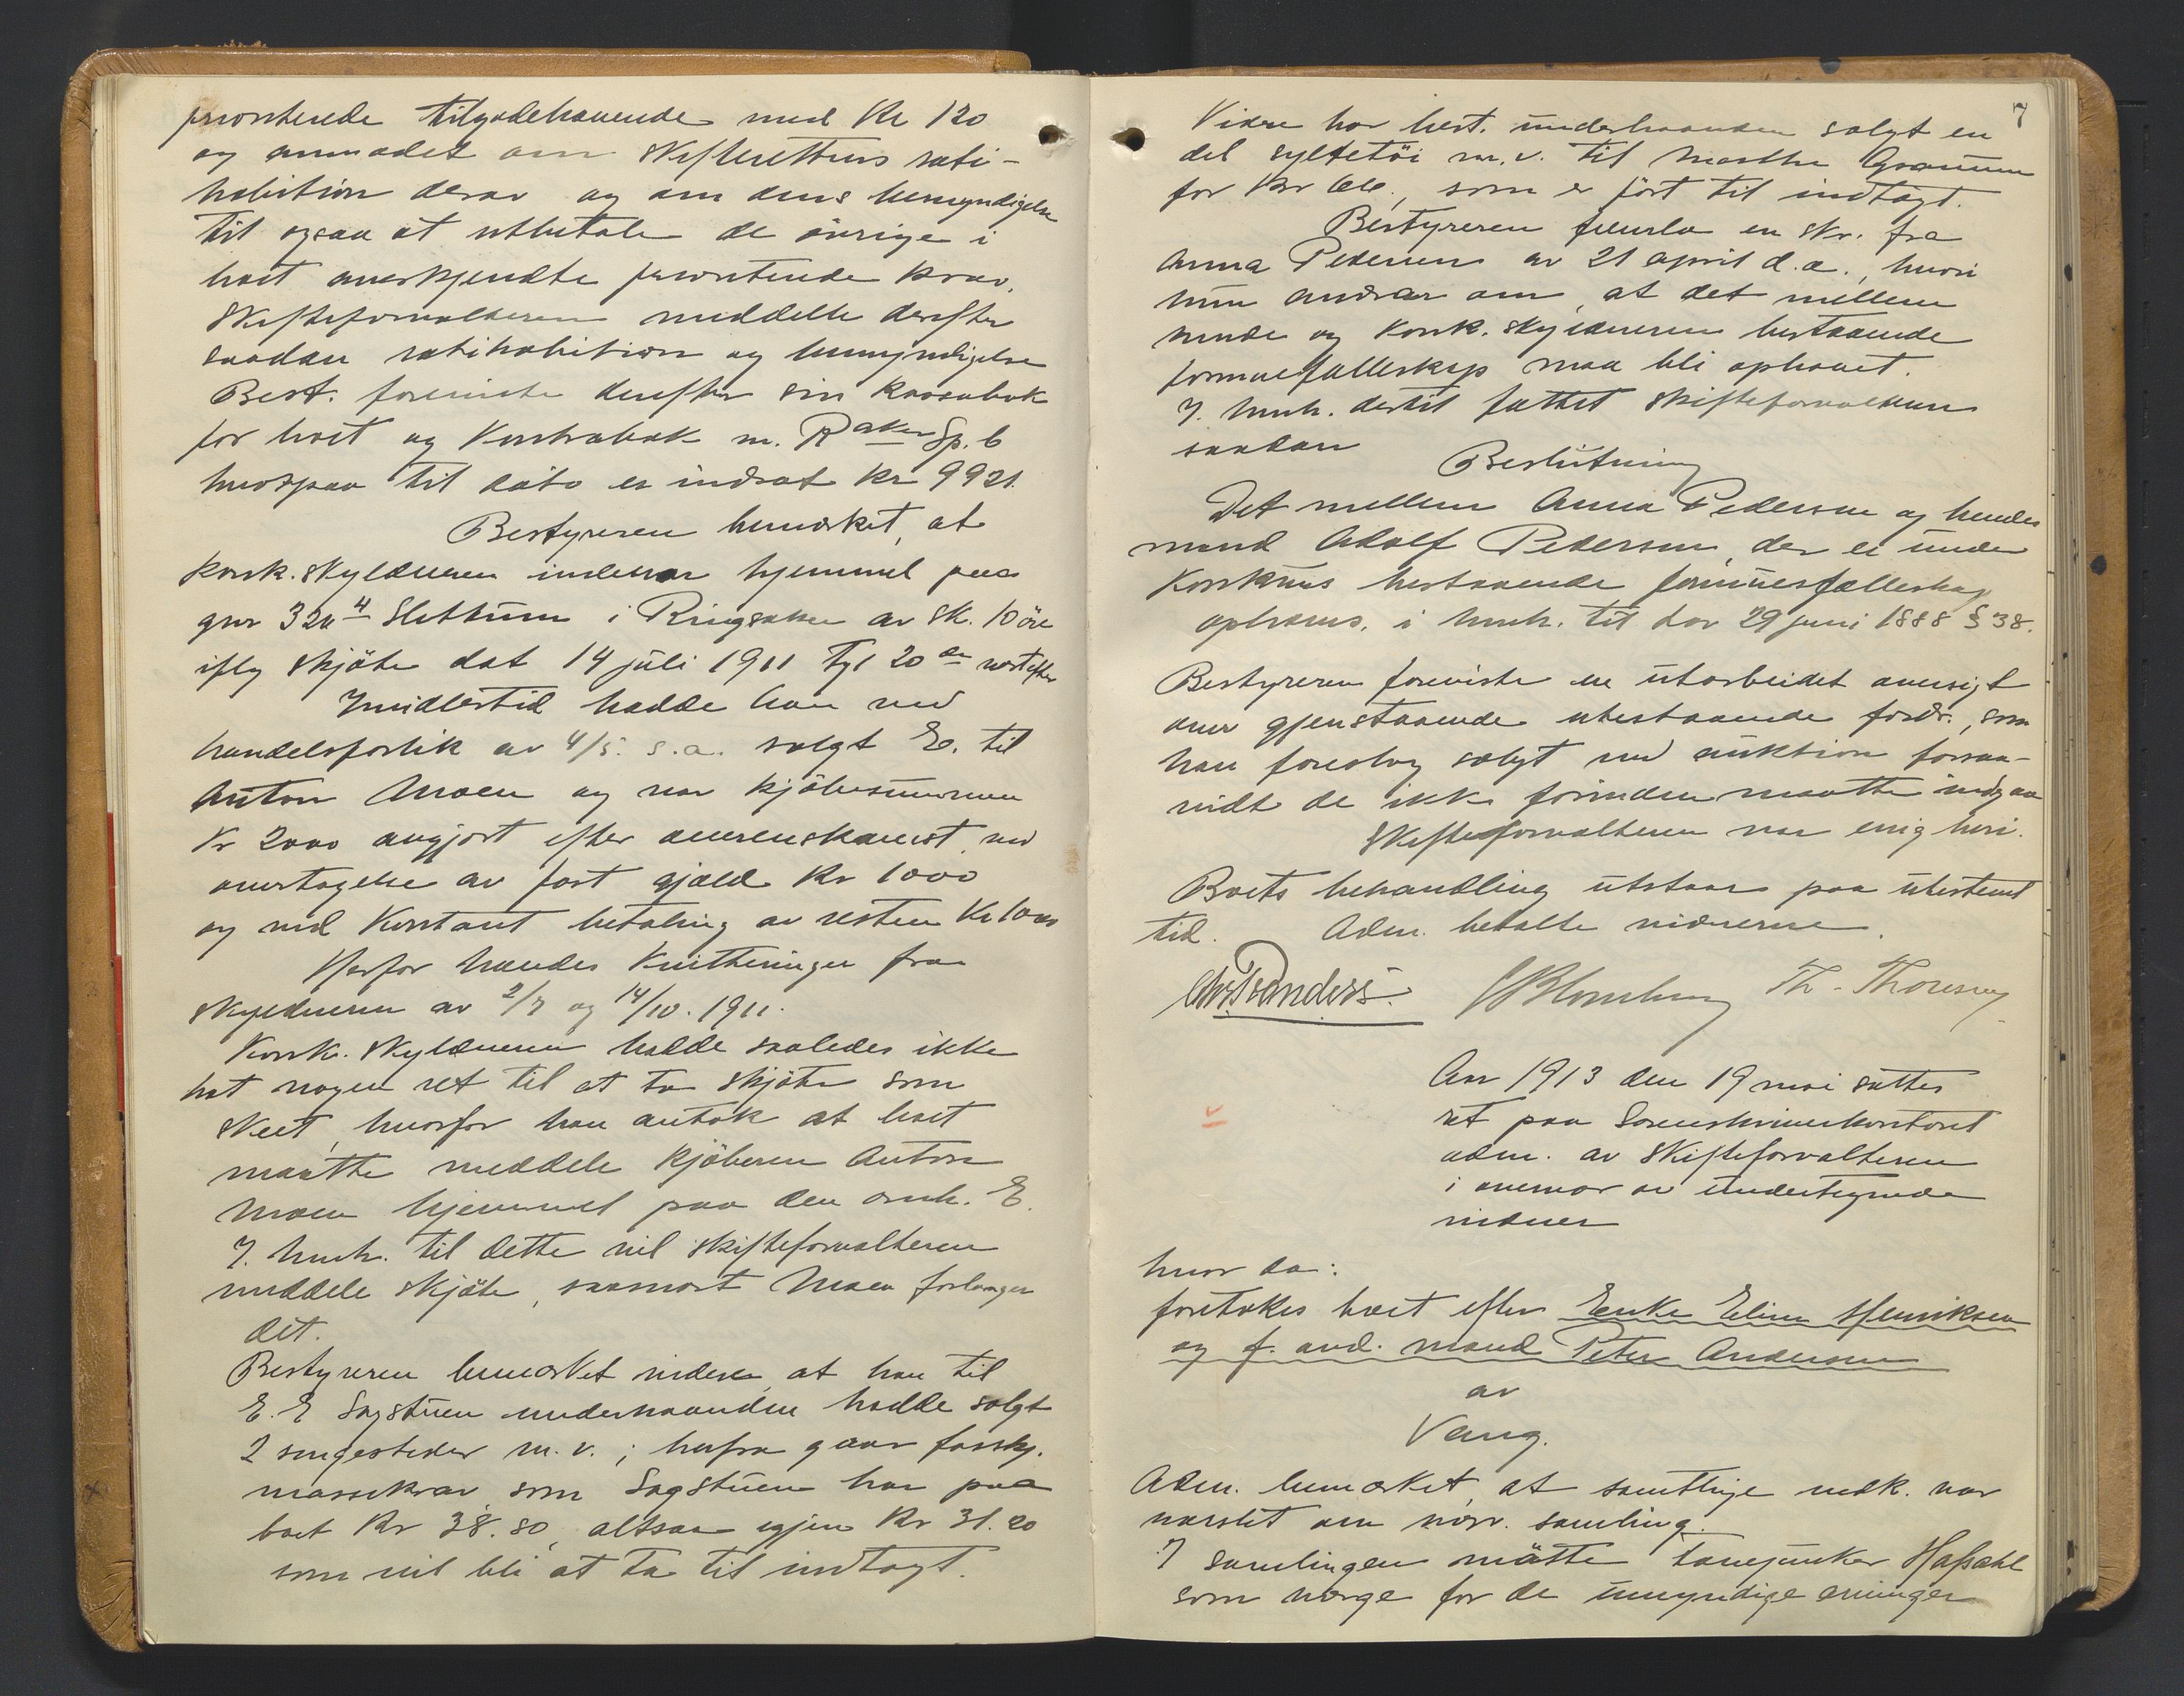 prioriterede tilgodehavende med Kr 120
og anmodet om Skifterettens rati-
habition derav og om dens bemyndigelse
til ogsaa at utbetale de øvrige i
boet anerkjendte prioriterede krav.
Skifteforvalteren meddelte derefter
saadan ratihabition og bemyndigelse
Best. foreviste derefter sin Kassabok
for boet og Kontrabok m. Raker Sp. b
hvorpaa til dato er indsat kr 9921.
Bestyreren bemerket, at
konk. skyldneren innehar hjemmel paa
gnr 320 4 Slettum i Ringsaker av sk. 10 øre
iflg skjøte dat 14 juli 1911 tgl 20de næstefter
Imidlertid hadde han ved
handelsforlik av 4/5. s.a. solgt E. til
Anton Moen og var kjøbesummen
Kr 2000 avgjort efter overenskomst ved
overtagelse av fast gjæld Kr 1000
og ved Kontant betaling av resten Kr 1000
Herfor havdes Kvitteringer fra
skyldneren av 2/7 og 14/10. 1911.
Konk. skyldneren hadde saaledes ikke
hat nogen ret til at ta skjøte som
skeet, hvorfor han antok at boet
maatte meddele kjøberen Anton
Moen hjemmel paa den omh. E.
I henh. til dette vil skifteforvalteren
meddele skjøte, saasnart Moen forlanger
det.
Bestyreren bemerket videre, at han til
E. E Sagstuen underhaanden hadde solgt
2 sengesteder m. v.; herfra gaar forskj.
massekrav som Sagstuen har paa
boet Kr 38.80, altsaa igjen Kr 31.20
som vil bli at ta til indtægt.
7
Videre har best. underhaanden solgt en
del syltetøi m. v. til Marthe
for kr 66, som er ført til indtægt.
Bestyreren fremla en skr. fra
Anna Pedersen av 21 april d.a., hvori
hun andrar om, at det mellem
hende og konk. skyldneren bestaaende
formuefælleskap maa bli ophævet.
I henh. dertil fattet skifteforvalteren
saadan
Beslutning
Det mellem Anna Pedersen og hendes
mand Adolf Pedersen, der er under
Konkurs bestaaende formuesfælleskap
ophæves, i henh. til lov 29 juni 1888 § 38.
Bestyreren foreviste en utarbeidet oversigt
over gjenstaaende utestaaende fordr., som
han foreslog solgt ved auktion forsaa-
vidt de ikke forinden maatte indgaa
Skifteforvalteren var enig heri.
Boets behandling utstaar paa ubestemt
tid. Adm. betalte vidnerne.
Chr. Randers. Blomberg Th. Thoresen
Aar 1913 den 19 mai sattes
ret paa Sorenskriverkontoret
adm. av Skifteforvalteren
i overvær av undertegnede
vidner
hvor da:
foretakes boet efter Enke Eline Henriksen
og f. avd. mand Peter Andersen
av
Vang.
Adm. bemerket, at samtlige vedk. var
varslet om nærv. samling.
I samlingen møtte lanejunker Hafsahl
som værge for de umyndige arvinger